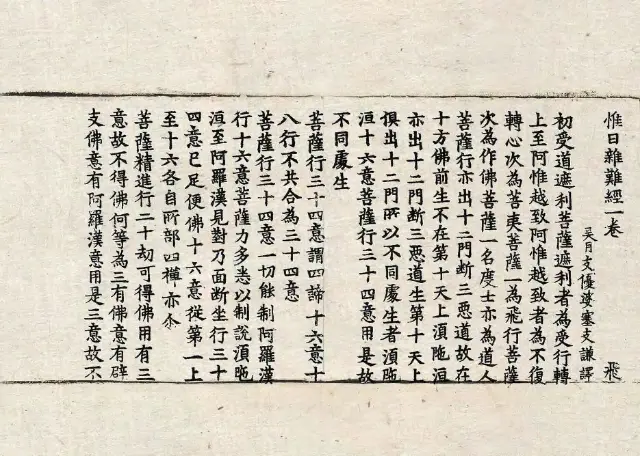 惟日雜難經一卷 飛
吳月支優婆塞支謙譯
初受道遮利菩薩遮利者為受行轉
上至阿惟越致阿惟越致者為不復
轉心次為菩夷菩薩一為飛行菩薩
次為作佛菩薩一名度士亦為道人
菩薩行亦出十二門断三惡道故在
十方佛前生不在第十天上湏陁洹
亦出十二門断三惡道生第十天上
俱出十二門𠩄以不同處生者湏陁
洹十六意菩薩行三十四意用是故
不同處生
菩薩行三十四意謂四諦十六意十
八行不共合為三十四意
菩薩行三十四意一切能制阿羅漢
行十六意菩薩力多恚以制說湏陁
洹至阿羅漢見對乃面断坐行三十
四意已足便佛十六意從第一上
至十六各自𠩄部四禪亦尒
菩薩精進行二十劫可得佛用有三
意故不得佛何等為三有佛意有辟
支佛意有阿羅漢意用是三意故不